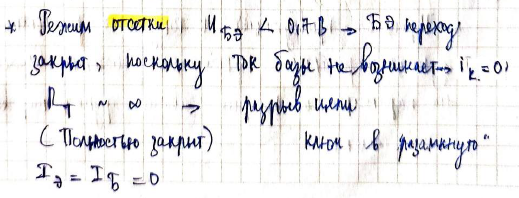 * Режим отсечки U_БЭ < 0,7В → БЭ переход
закрыт, поскольку ток базы не возникает → i_к = 0,
R_T ~ ∞ → разрыв цепи
(Полностью закрыт) ключ в разомкнуто"
I_Э = I_Б = 0